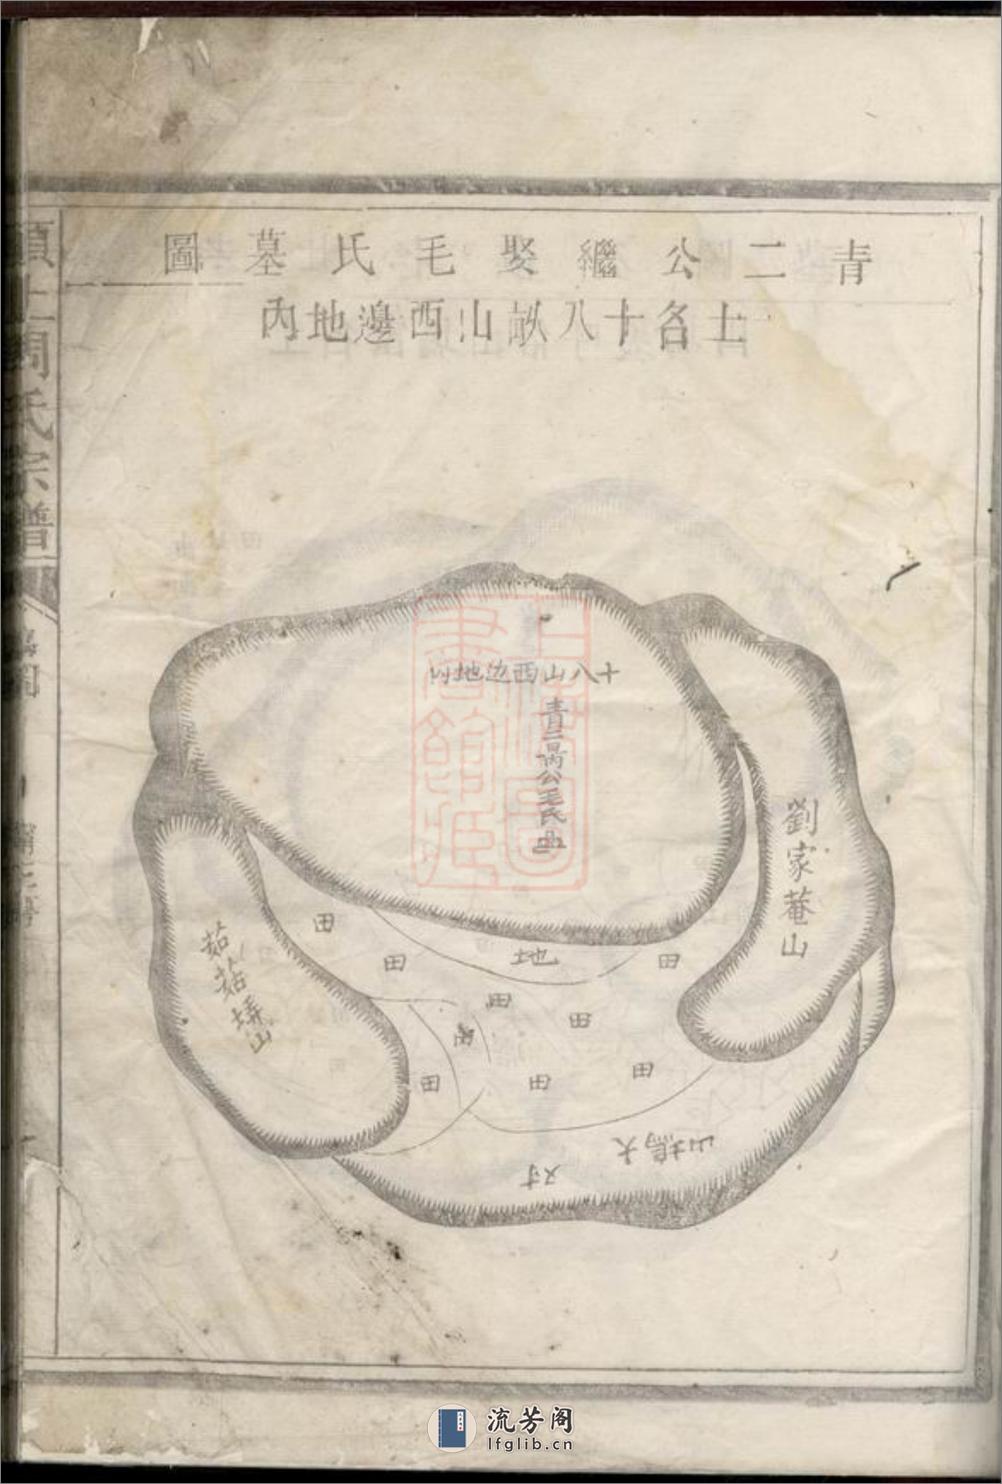 青二公繼娶毛氏墓圖
土名十八畝山西邊地內
十八山西边地内
青二公毛氏
劉家菴山
茹菇塆山
田
田
地
田
田
田
田
田
田
大塢山
对
周氏宗譜
上海圖書館藏
流芳阁
lfglib.cn